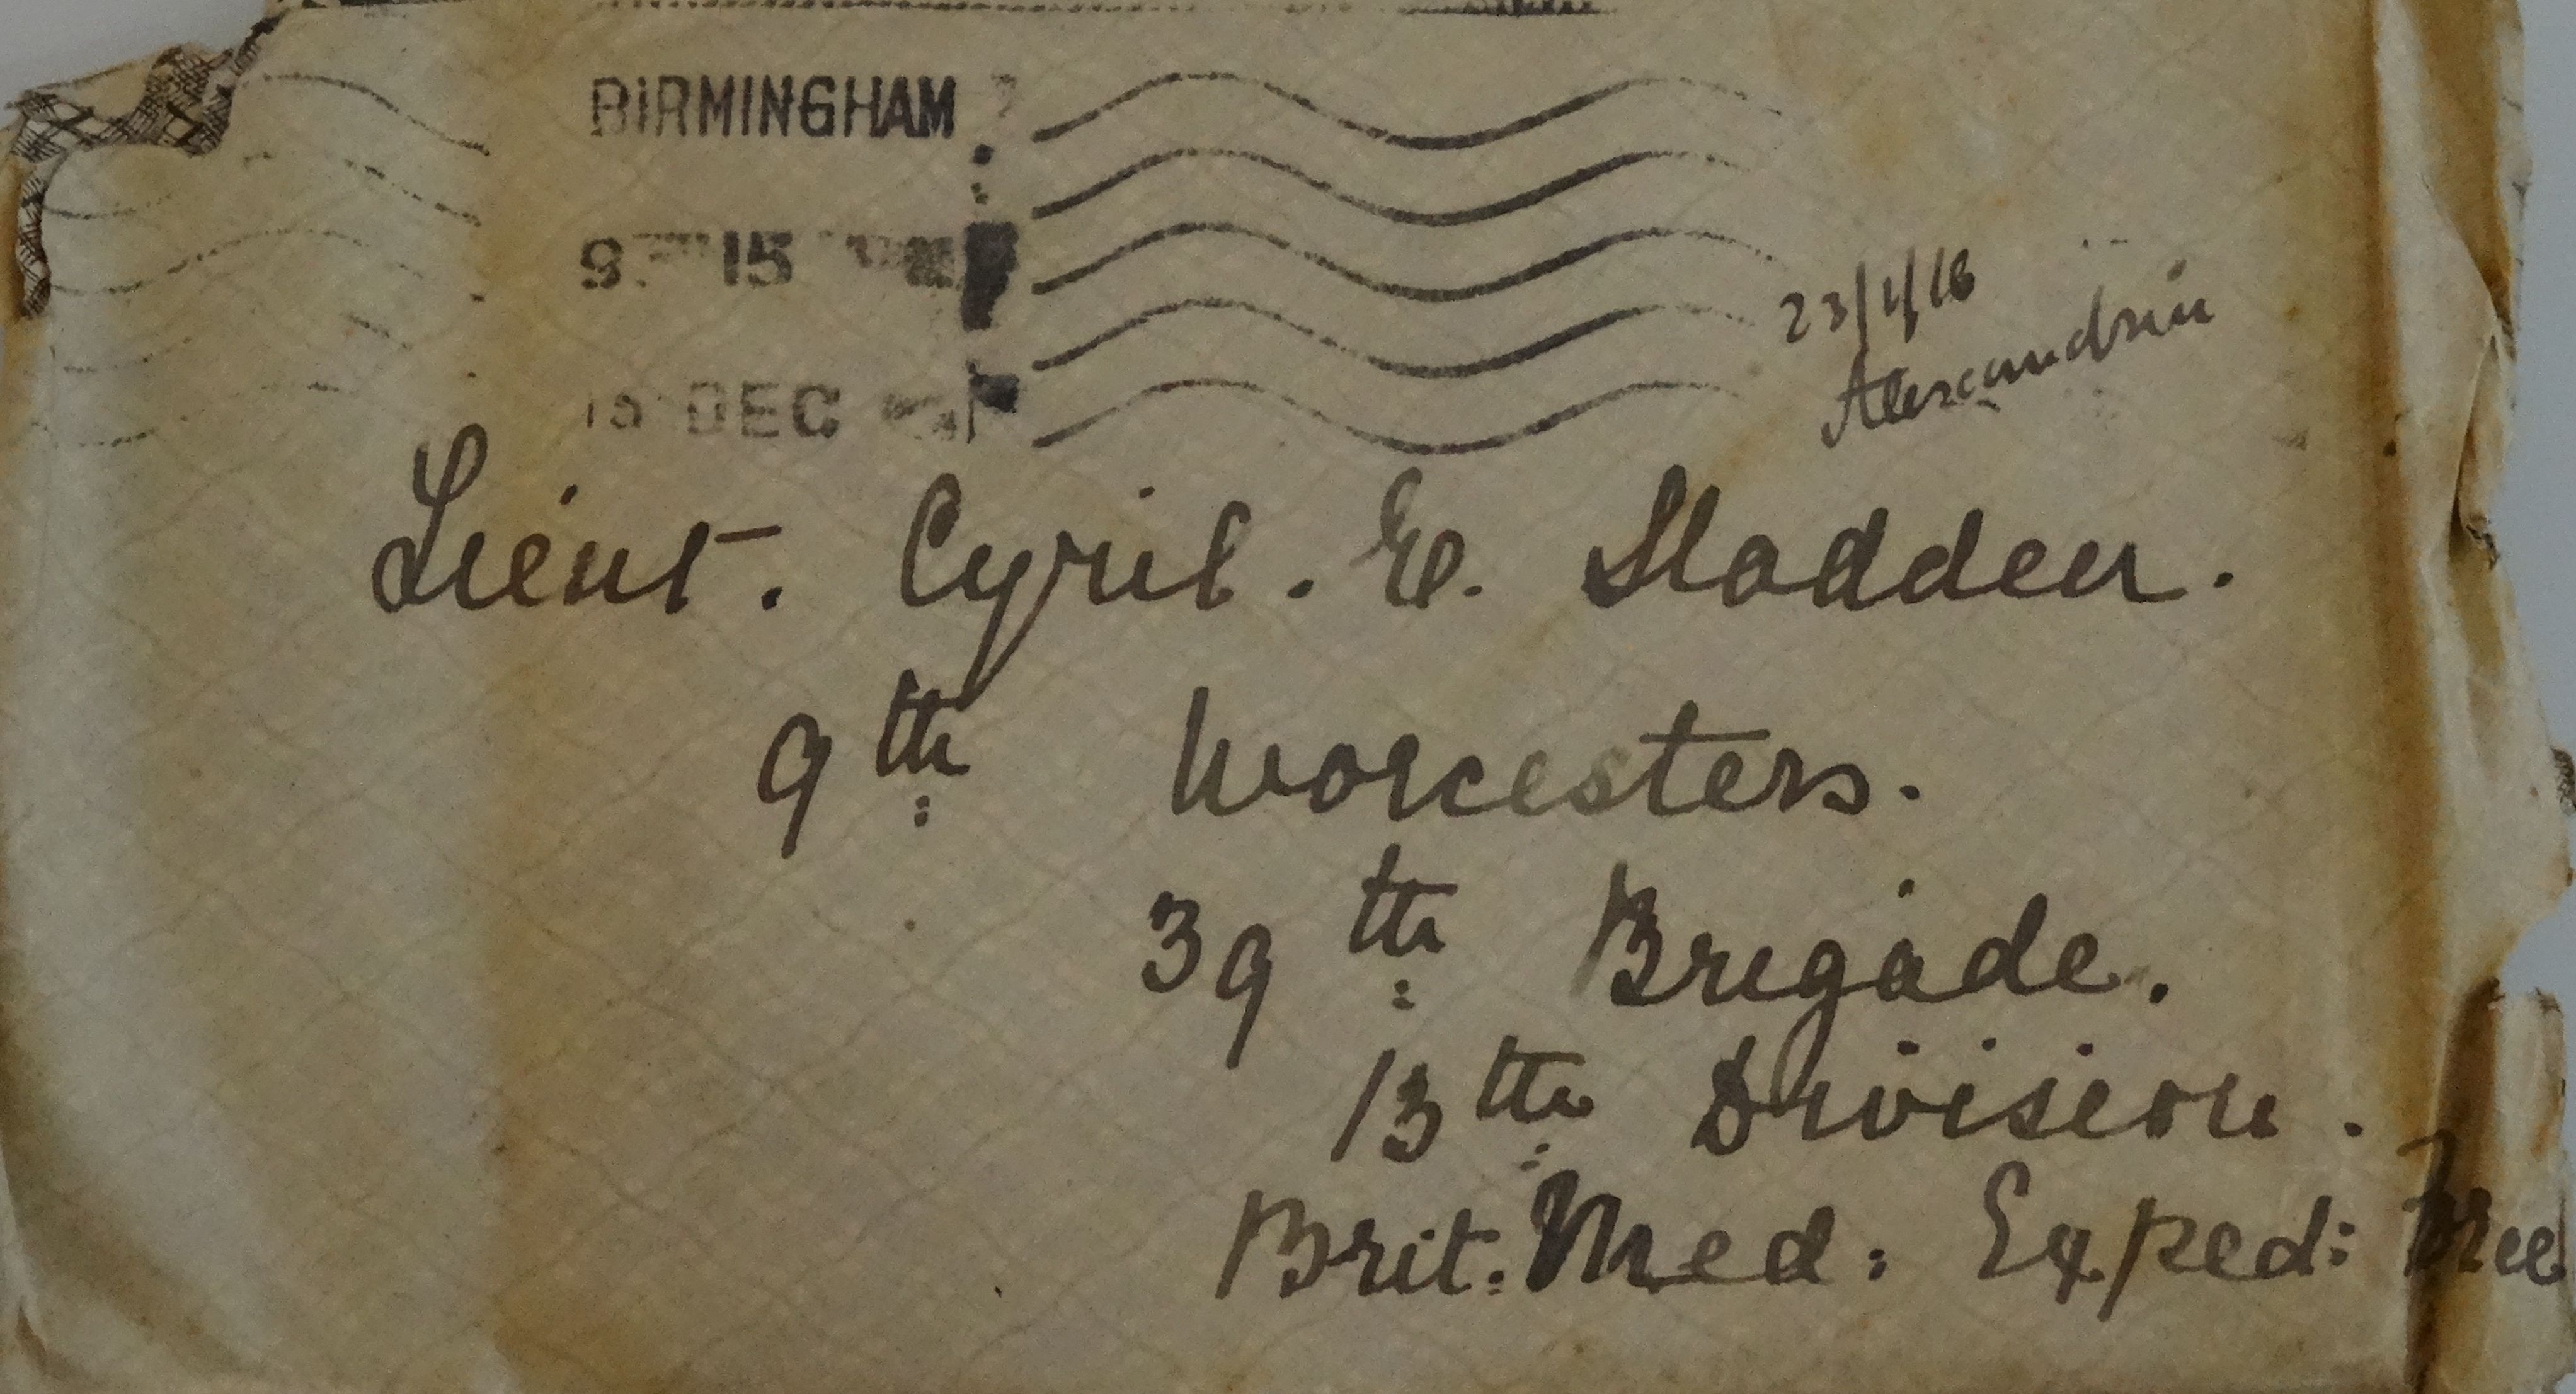 BIRMINGHAM
9 15
15 DEC
23/1/16
Alexandria
Lieut. Cyril. E. Sladden.
9th Worcesters.
39th Brigade.
13th Division.
Brit: Med: Exped: